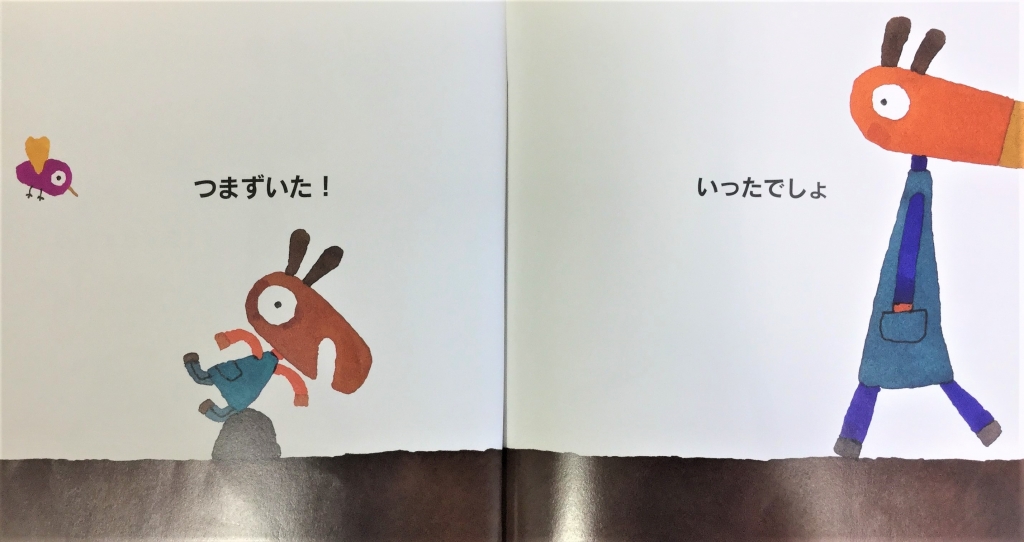 つまずいた！
いったでしょ